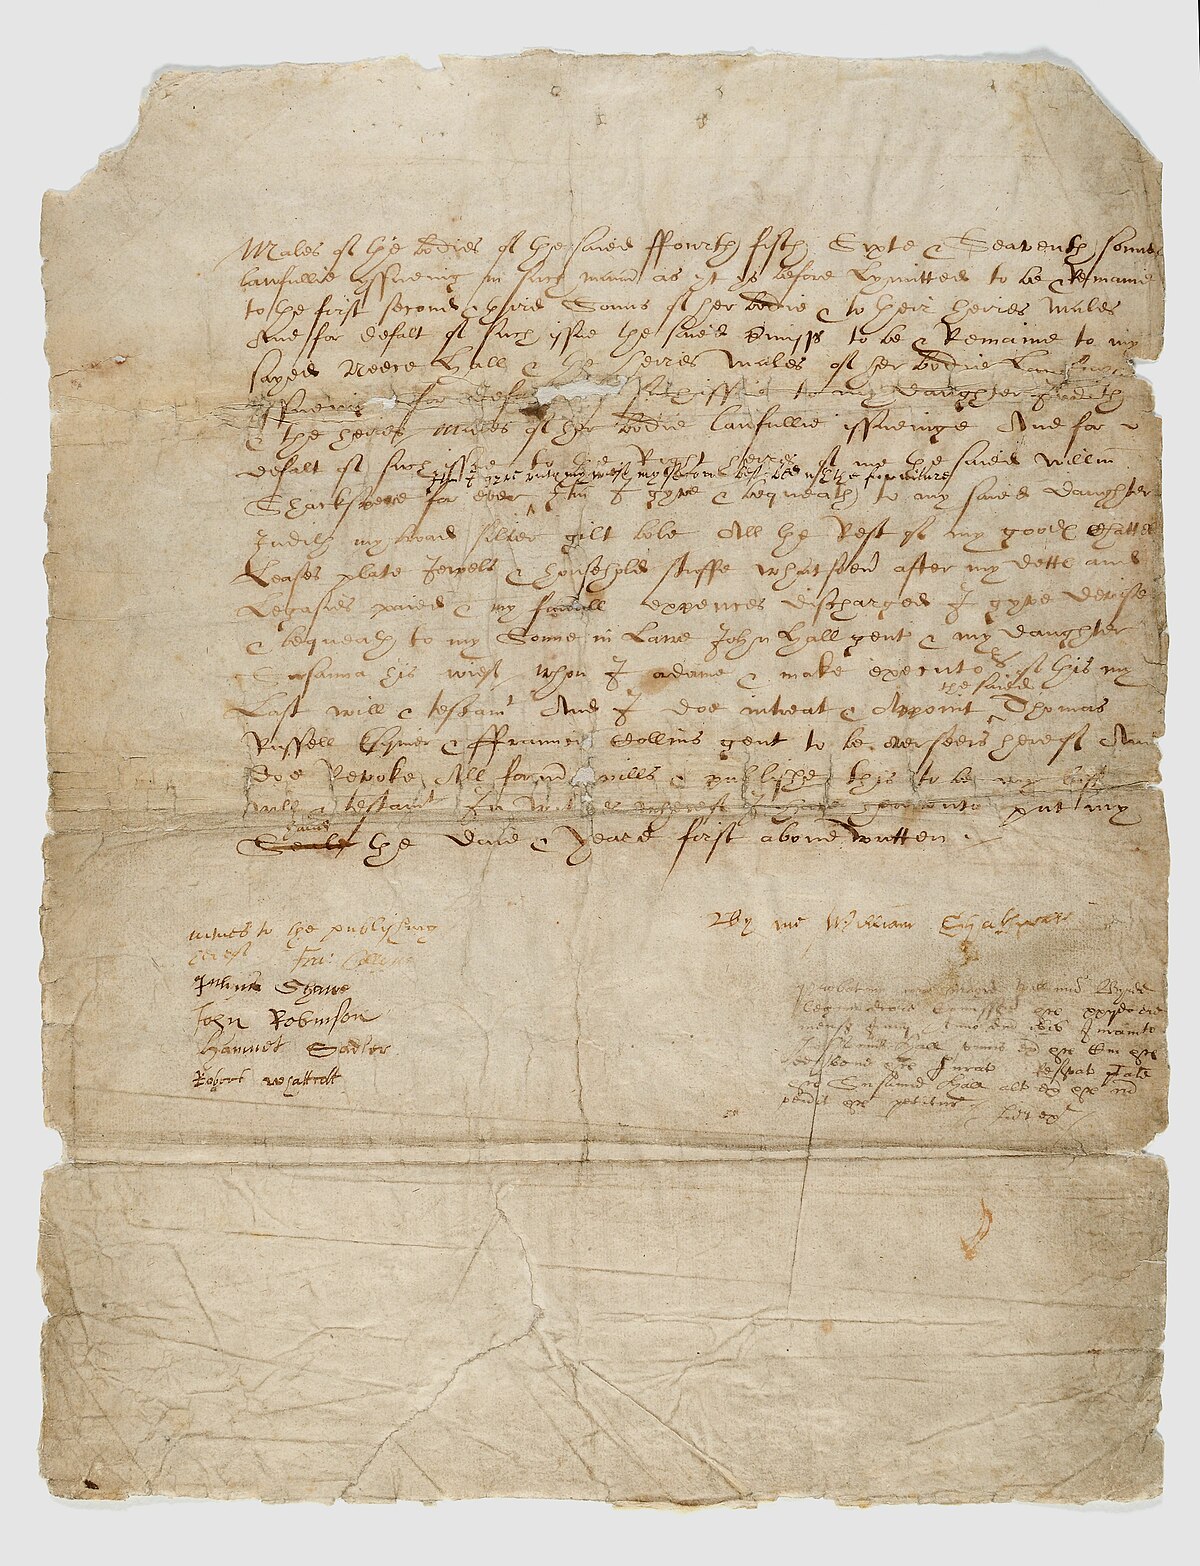 Males of the bodies of the saied ffourth fifth Sixte & Seaventh sonnes
lawfullie yssueing in such manner as yt ys before Lymitted to be & Remaine
to the first second & third Sonns of her bodie & to their heires Males
And for defalt of such issue the saied premisses to be & Remaine to my
sayed Neece Hall & the heires Males of her bodie Lawfully
yssueing for defa such issue to my daughter Judith
& the heires Males of her bodie lawfullie issueinge And for
defalt of such issue to the Right heires of me the saied willm
Itm I gyve unto my wief my second best bed with the furniture
Shackspere for ever Itm I gyve & bequeath to my saied daughter
Judith my broad silver gilt bole All the Rest of my goodes Chattels
Leases plate Jewels & household stuffe whatsoever after my dettes and
Legasies paied & my funerall expences discharged I gyve devise
& bequeath to my Sonne in Lawe John Hall gent & my daughter
Susanna his wief whom I ordaine & make executors of this my
Last will & testamt And I doe intreat & Appoint the saied Thomas
Russell Esquier & ffrauncis Collins gent to be overseers hereof And
doe Revoke All former wills & publishe this to be my last
will & testamt In witnes whereof I have hereunto put my
hand
Seale the daie & Yeare first above written.
witnes to the publishing
hereof Fra: Collyns
Julyus Shawe
John Robinson
Hamnet Sadler
Robert whattcott
By me William Shakspeare